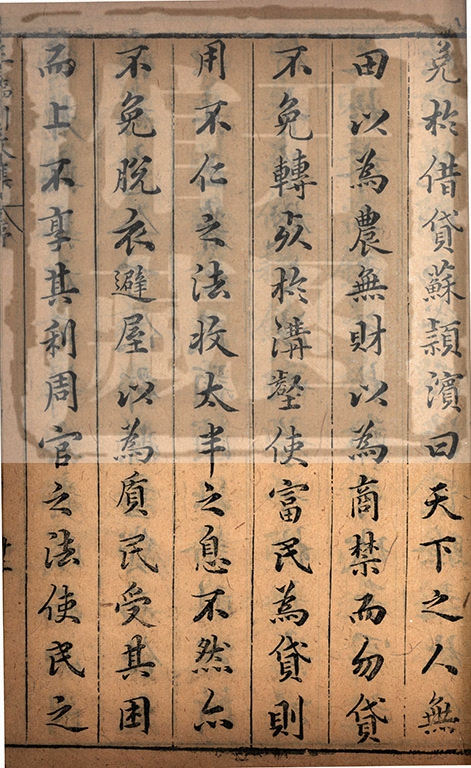 免於借貸蘇頴濵曰天下之人無
田以為農無財以為商禁而勿貸
不免轉死於溝壑使富民為貸則
用不仁之法收太半之息不然亦
不免脫衣避屋以為質民受其困
而上不享其利周官之法使民之